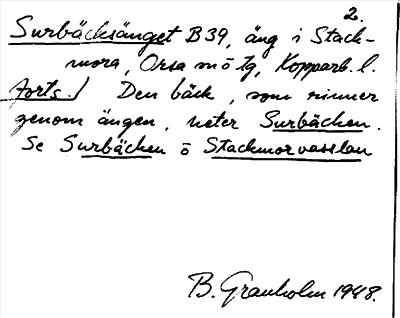 2.
Surbäcksänget B39, äng i Stack-
mora, Orsa sn ö tg, Kopparb. l.
forts./ Den bäck, som rinner
genom ängen, heter Surbäcken.
Se Surbäcken o Stackmorvasslan
B. Granholm 1948.